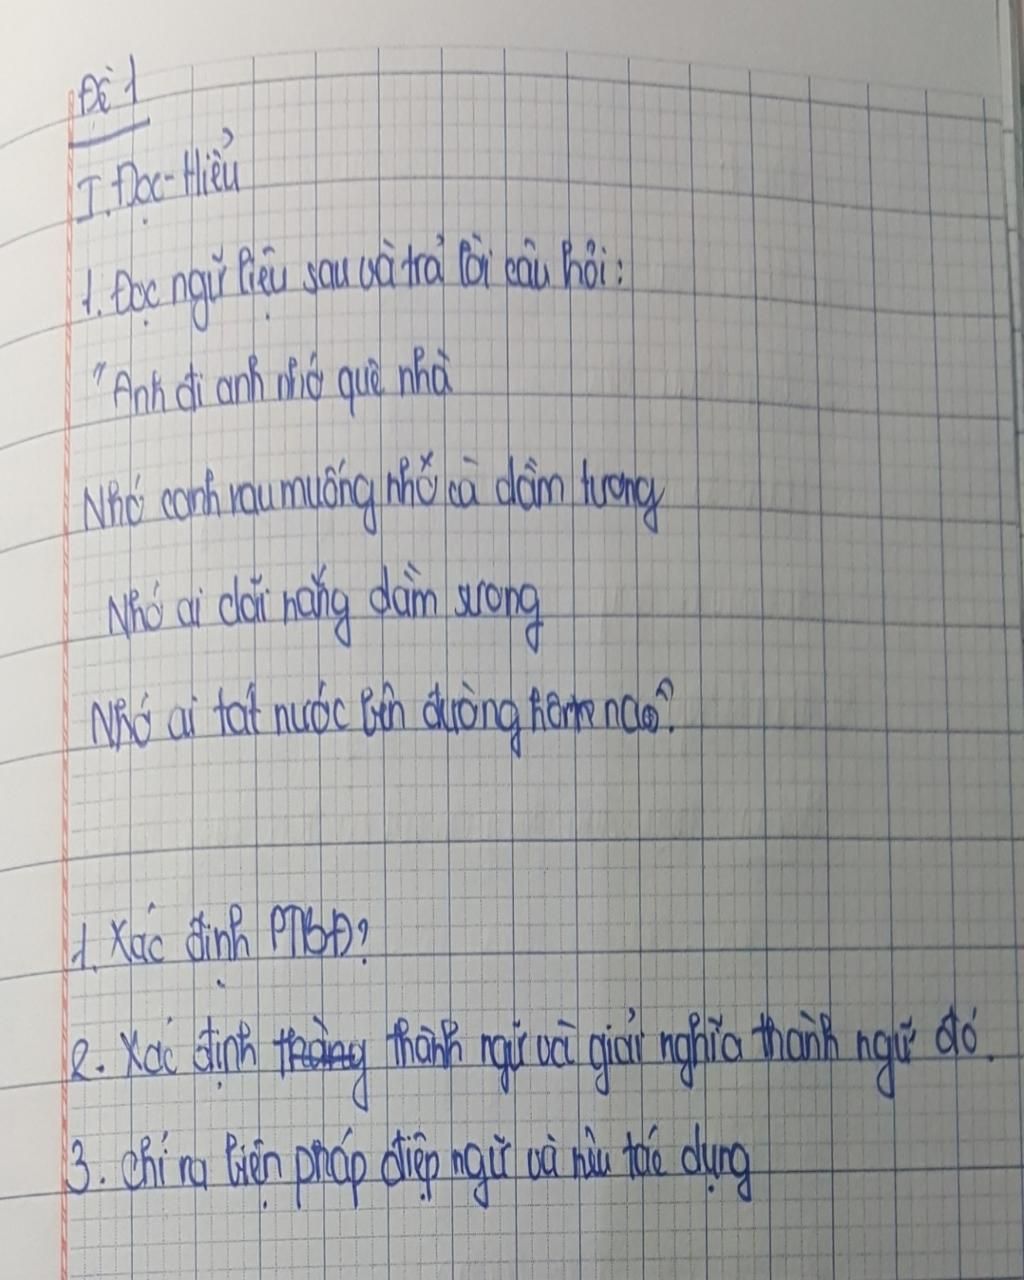 Đề 1
I. Đọc-Hiểu
1. Đọc ngữ liệu sau và trả lời câu hỏi:
"Anh đi anh nhớ quê nhà
Nhớ canh rau muống nhớ cà dầm tương
Nhớ ai dãi nắng dầm sương
Nhớ ai tát nước bên đường hôm nao?
1. Xác định PTBĐ?
2. Xác định thành ngữ và giải nghĩa thành ngữ đó.
3. Chỉ ra biện pháp điệp ngữ và nêu tác dụng